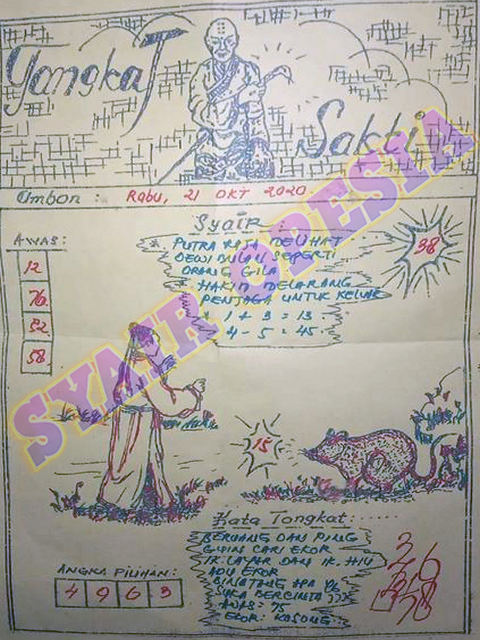 Tongkat
Sakti
Ambon : Rabu, 21 OKT 2020.
Syair :
AWAS:
* PUTRA RAJA MELIHAT
DEWI BULAN SEPERTI
ORANG GILA
* HAKIM MELARANG
PENJAGA UNTUK KELUAR
* 1 + 3 = 13
4 - 5 = 45
38
12
76
52
58
15
Kata Tongkat:.....
BERUANG DAN PING
GUIN CARI EKOR
IK LAYAR DAN IK. HIU
ADU EKOR
BINATANG APA YG
SUKA BERCINTA ???
AWAS: 75
EKOR: KOSONG
ANGKA PILIHAN:
4 9 6 3
SYAIR OPESIA